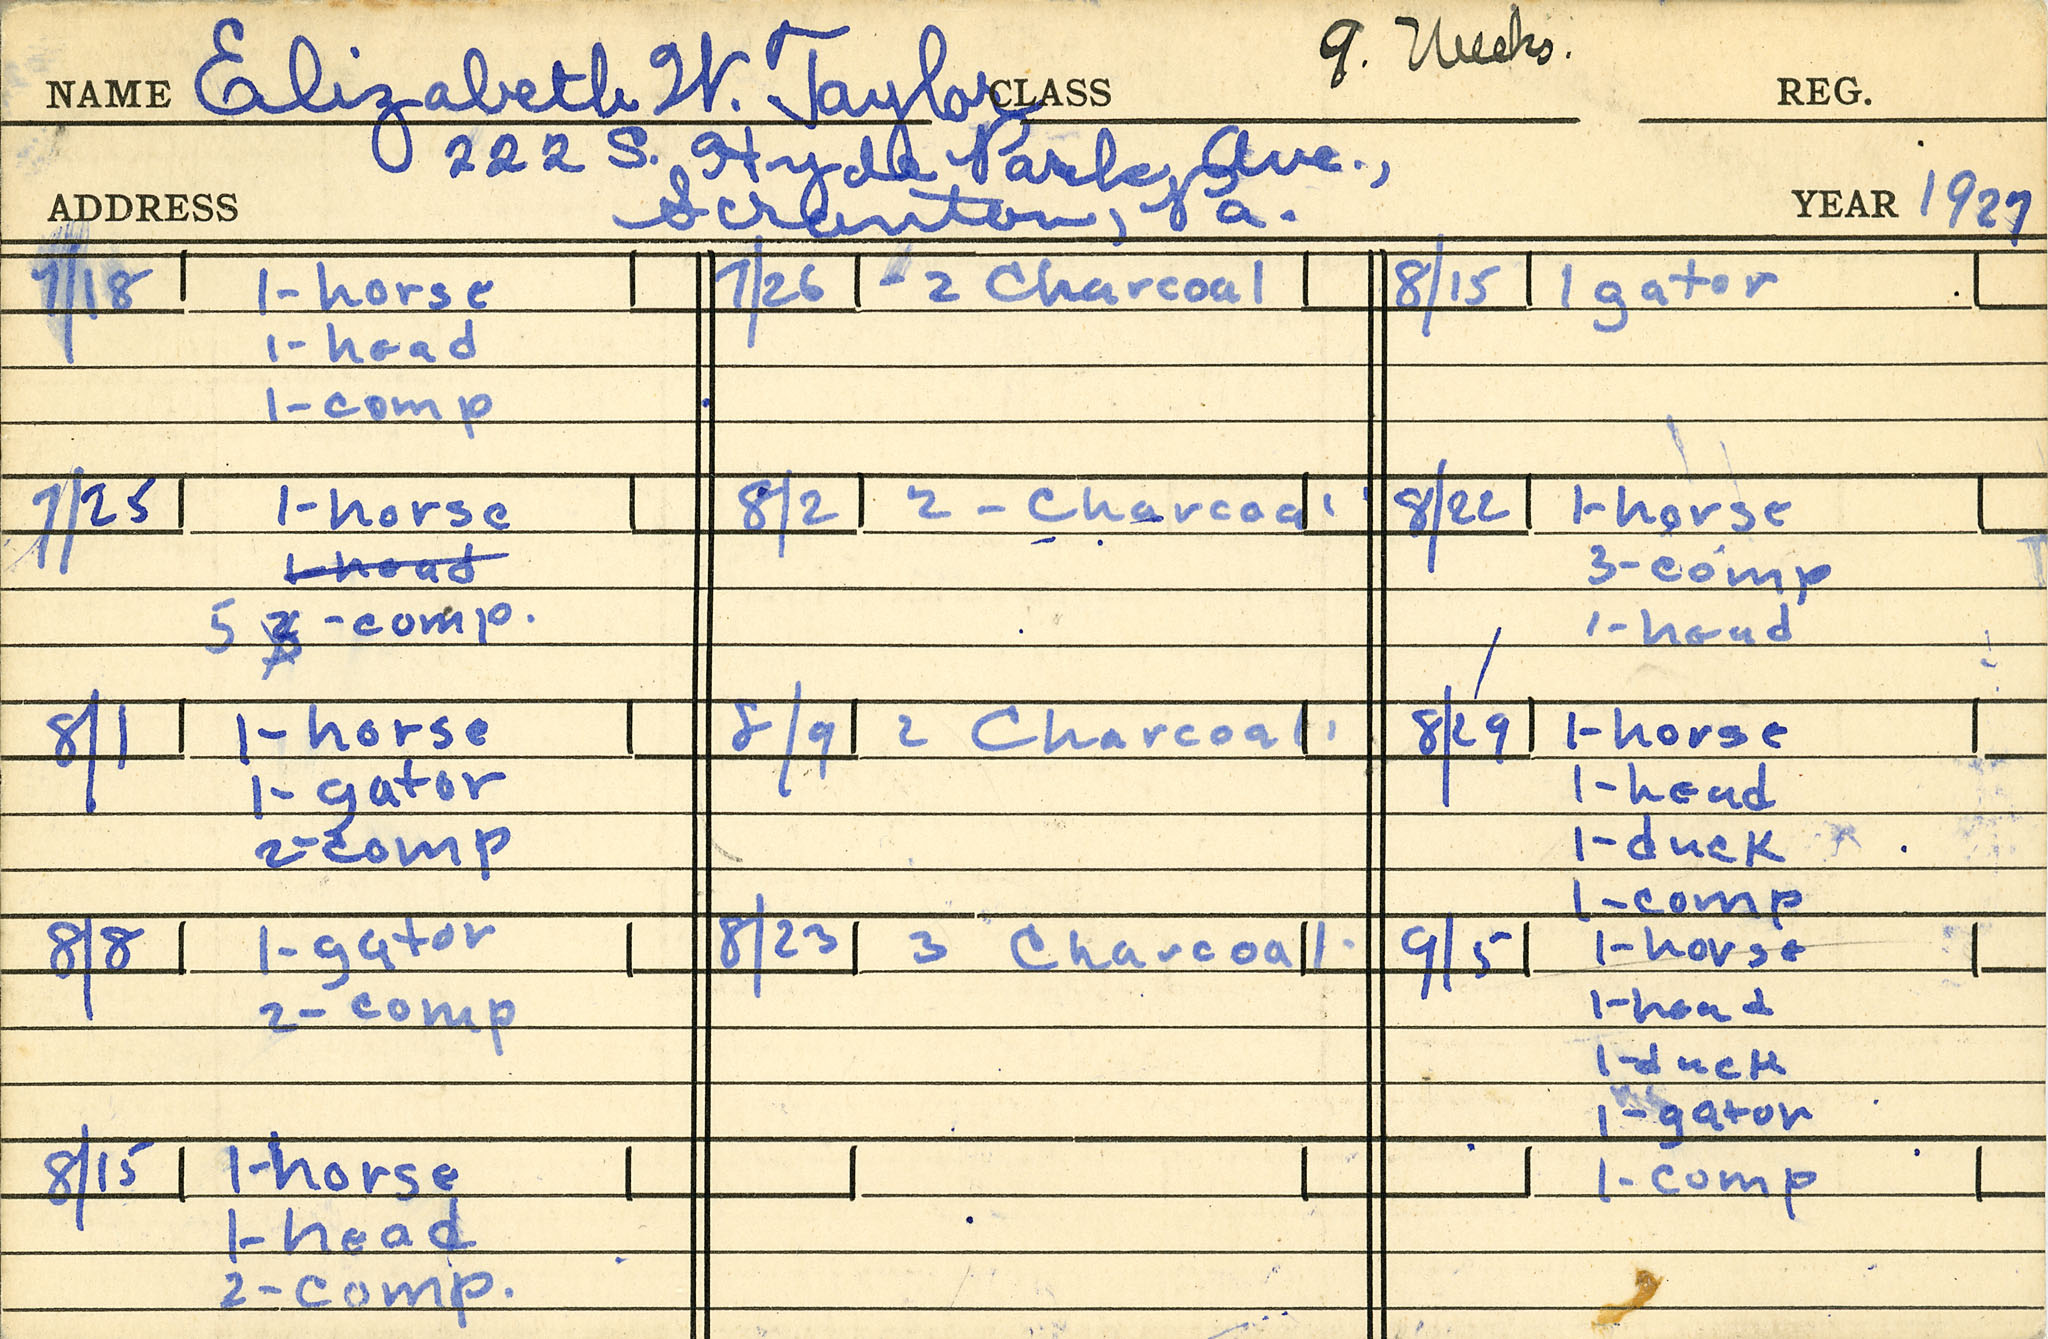 NAME Elizabeth W. Taylor CLASS 9. Weeks. REG.
222 S. Hyde Park, Ave.,
ADDRESS Scranton, Pa. YEAR 1927
7/18 1-horse
1-head
1-comp
7/25 1-horse
1-head
5 -comp.
8/1 1-horse
1-gator
2-comp
8/8 1-gator
2-comp
8/15 1-horse
1-head
2-comp.
7/26 -2 Charcoal
8/2 2-Charcoal
8/9 2 Charcoal
8/23 3 Charcoal
8/15 1 gator
8/22 1-horse
3-comp
1-head
8/29 1-horse
1-head
1-duck
1-comp
9/5 1-horse
1-head
1-duck
1-gator
1-comp